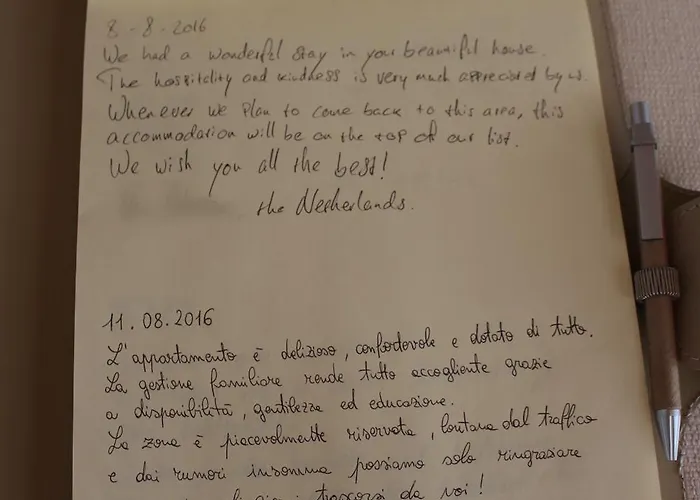 8-8-2016
We had a wonderful stay in your beautiful house.
The hospitality and kindness is very much appreciated by us.
Whenever we plan to come back to this area, this
accommodation will be on the top of our list.
We wish you all the best!
the Netherlands.
11.08.2016
L'appartamento è delizioso, confortevole e dotato di tutto.
La gestione familiare rende tutto accogliente grazie
a disponibilità, gentilezza ed educazione.
La zona è piacevolmente riservata, lontana dal traffico
e dai rumori insomma possiamo solo ringraziare
trascorsi da voi!